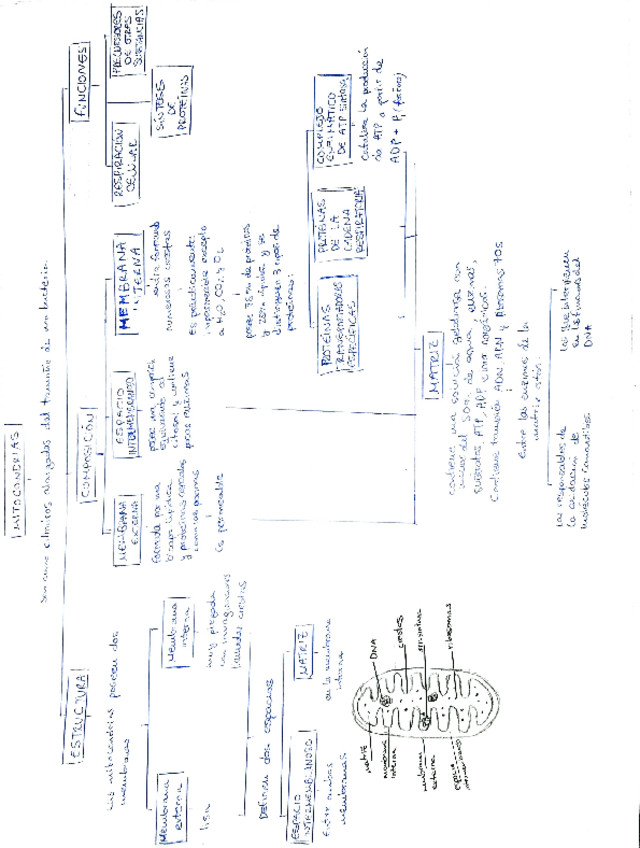 MITOCONDRIAS
Son unos cilíndricos alargados del tamaño de una bacteria.
ESTRUCTURA
Las mitocondrias poseen dos
membranas
Membrana
externa
lisa
Membrana
interna
muy plegada
en invaginaciones
llamadas crestas
Definen dos espacios
ESPACIO
INTERMEMBRANOSO
Entre ambas
membranas
MATRIZ
en la membrana
interna
matriz
membrana
interna
membrana
externa
espacio
DNA
crestas
ribosomas
COMPOSICIÓN
MEMBRANA
EXTERNA
Formada por una
bicapa lipídica
y proteínas
Es permeable
ESPACIO
INTERMEMBRANOSO
posee una
al
citosol y contiene
pocas enzimas
MEMBRANA
INTERNA
formando
numerosas crestas
Es prácticamente
impermeable excepto
a H₂O, CO₂ y O₂
posee 75% de proteínas
y 25% lípidos y se
distinguen 3 tipos de
proteínas:
PROTEÍNAS
TRANSPORTADORAS
ESPECÍFICAS
PROTEÍNAS
DE LA
CADENA
RESPIRATORIA
COMPLEJO
ENZIMÁTICO
DE ATP SINTASA
cataliza la producción
de ATP a partir de
ADP + Pi (fósforo)
MATRIZ
contiene una solución gelatinosa con
del 50% de agua, enzimas,
sustratos, ATP, ADP e iones inorgánicos.
Contiene también ADN, ARN y RIBOSOMAS 70S
Entre las enzimas de la
matriz están:
Las responsables de
la oxidación de
moléculas combustibles
las que intervienen
en las funciones del
DNA
FUNCIONES
RESPIRACIÓN
CELULAR
SÍNTESIS
DE
PROTEÍNAS
PRECURSORES
DE OTRAS
SUSTANCIAS